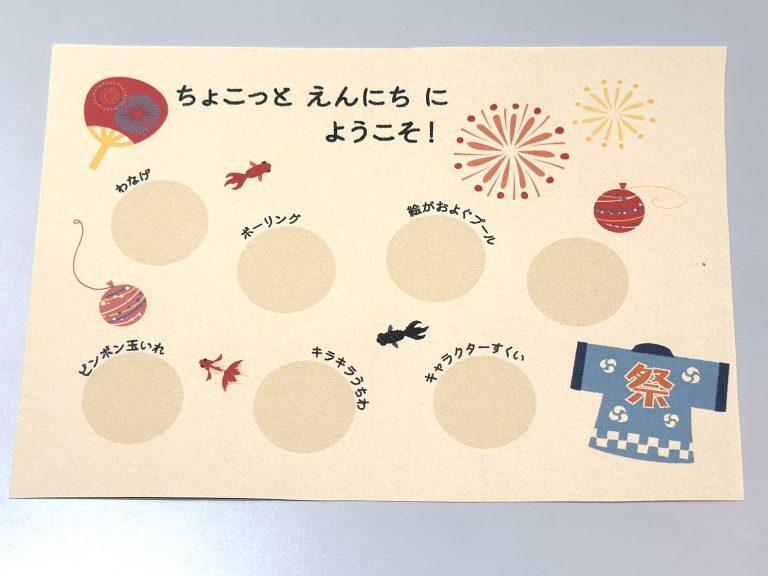 ちょこっと えんにち に
ようこそ！
わなげ
ボーリング
絵がおよぐプール
ピンポン玉いれ
キラキラうちわ
キャラクターすくい
祭